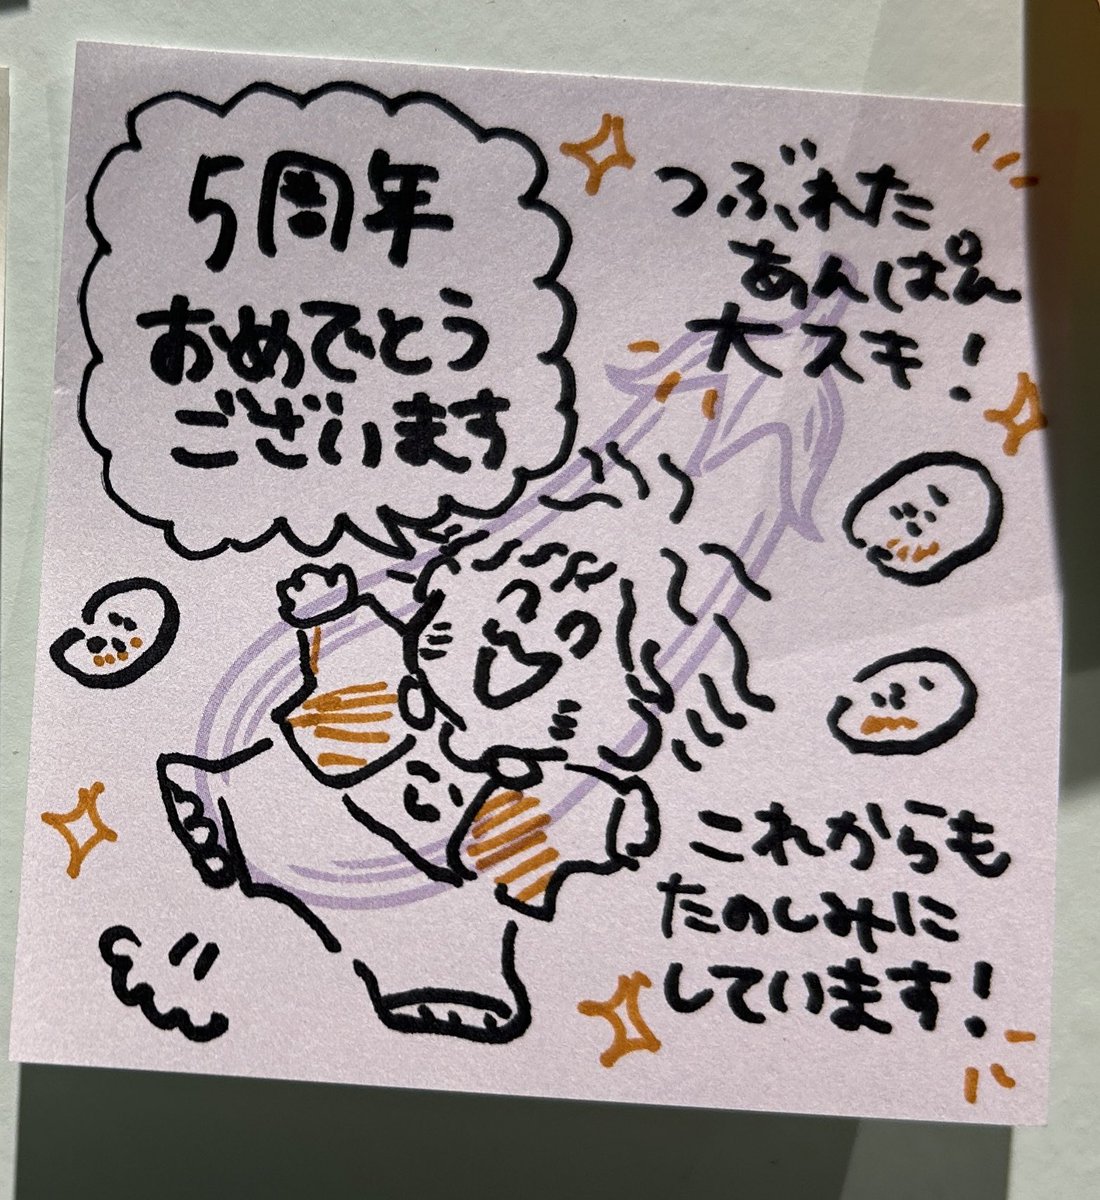 5周年
おめでとう
ございます
つぶれた
あんぱん
大スキ!
これからも
たのしみに
しています!